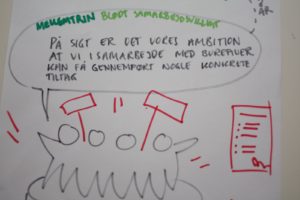 MELLEMTRIN BLØDT SAMARBEJDSVILLIGT
PÅ SIGT ER DET VORES AMBITION
AT VI, I SAMARBEJDE MED BUREFUER
KAN FÅ GENNEMFØRT NOGLE KONKRETE
TILTAG
ÅR